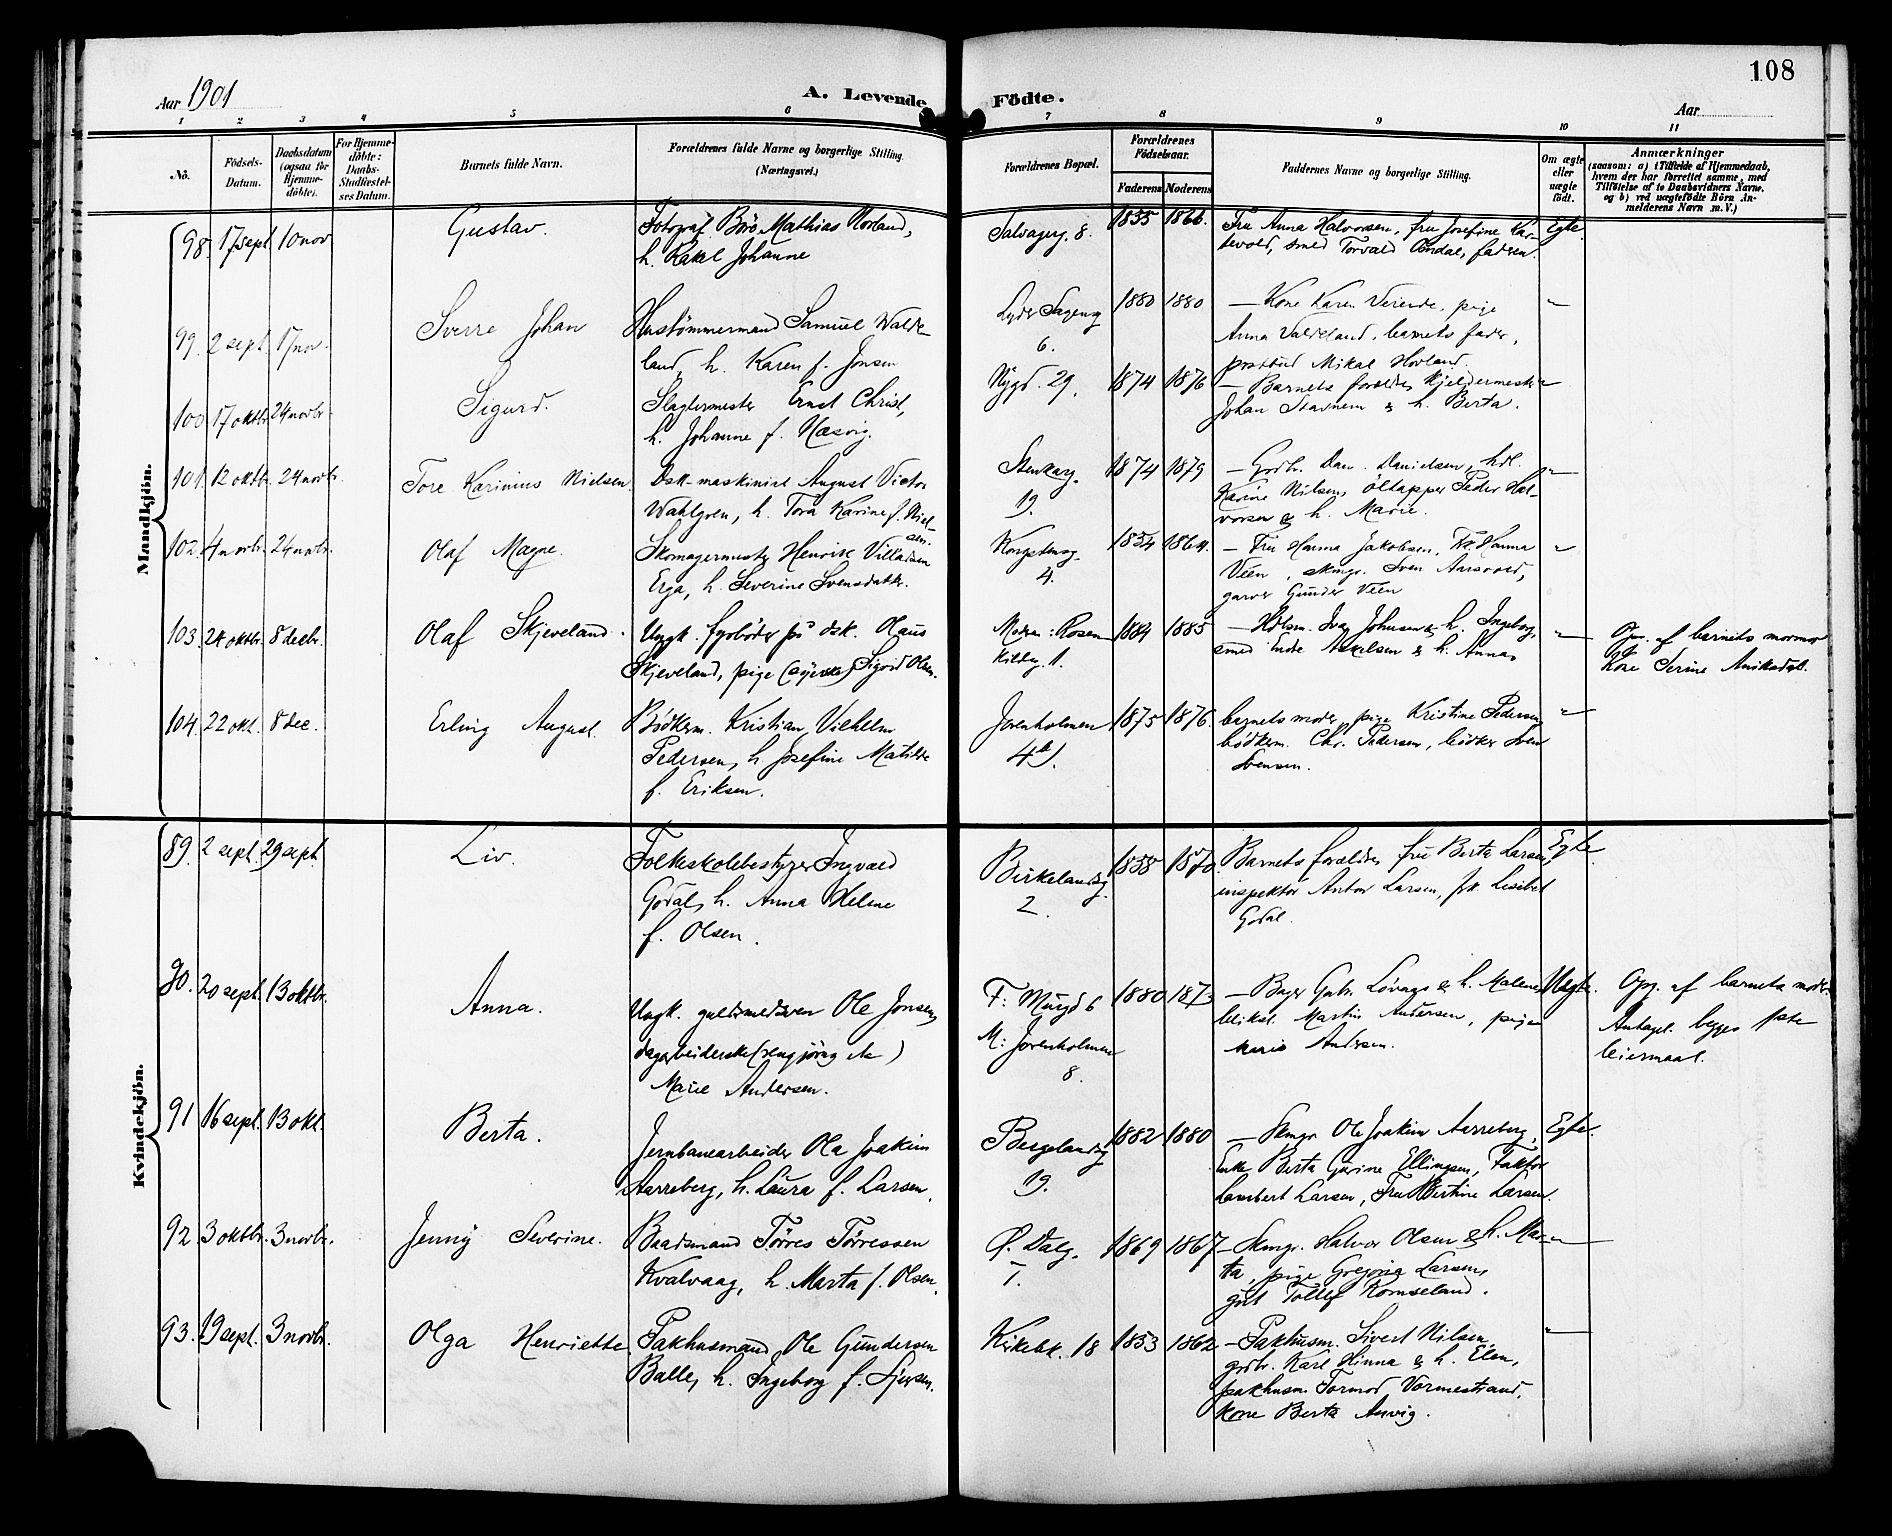 108
Aar 1901
A. Levende Födte.
Aar
1 2 3 4 5 6 7 8 9 10 11
No.
Födsels-Datum.
Daabsdatum (ogsaa for Hjemmedöbte).
For Hjemmedöbte: Daabs-Stadfæstelses Datum.
Barnets fulde Navn.
Forældrenes fulde Navne og borgerlige Stilling. (Næringsvei.)
Forældrenes Bopæl.
Forældrenes Födselsaar.
Faderens Moderens
Faddernes Navne og borgerlige Stilling.
Om ægte eller uægte födt.
Anmærkninger
(saasom: a) i Tilfælde af Hjemmedaab, hvem der har forrettet samme, med Tilföielse af to Daabsvidners Navne. og b) ved uægtefödte Börn Anmelderens Navn m. V.)
Mandkjön.
98. 17 sept. 10 nov
Gustav.
Fotograf Böre Mathias Norland,
h. Rakel Johanne
Salvagerg. 8.
1855. 1866.
Fru Anna Halvorsen, fru Josefine
smed Torvald faderen.
Egte.
99. 2 sept 17 nov.
Sverre Johan
Hustømmermand Samuel Walde-
land, h. Karen f. Jonsen
Lyder Sagensg
6.
1880 1880
– Kone Karen pige
Anna Valdeland, barnets fader,
postbud Mikal Hovland.
100. 17 oktbr. 24 novbr.
Sigurd.
Slagtermester Ernst Christ,
h. Johanne f. Næsvig.
Nygd. 29.
1874 1876
– Barnets forældre, kjeldermest.
Johan Stavnem & h. Berta.
101. 12 oktbr. 24 novbr.
Tore Karinius Nielsen
Dsk-maskinist August Victor
Wahlgren, h. Tora Karine f. Niel-
sen.
Stenkarg.
19.
1874 1879
– Godtb. Dan. Danielsen, hdl.
Karine Nilsen, öltapper Peder Hal-
vorsen & h. Marie.
102. 4 novbr. 24 novbr.
Olaf Magne.
Skomagermester Henrik Villadsen
Erga, h. Severine Svensdatter.
Kongstensg.
4.
1854 1864.
– Fru Hanna Jakobsen, Hanna
Veen, skmgr. Sven Aarsvold,
garver Gunder Veen
103. 24 oktbr. 8 decbr.
Olaf Skjeveland.
Ungk. fyrbøder på dsk. Olaus
Skjeveland, pige (syerske) Sigrid Olsen.
Moren: Rosen
kildeg. 1.
1884 1885
– Hdlsm. Iver Johnsen & h. Ingeborg,
smed Endre Askelsen & h. Anna,
Opg. af barnets mormor
Kone Serine
104. 22 okt. 8 dec.
Erling August
Bödkerm. Kristian Vilhelm
Pedersen, h. Josefine Matilde
f. Eriksen.
Jorenholmen
4b).
1875 1876.
barnets moder, pige Kristine Pedersen,
bødkerm. Chr. Pedersen, bødker Sven
Svensen.
Kvindekjön.
89. 2 sept. 29 sept.
Liv.
Folkeskolebestyrer Ingvald
Godal, h. Anna Helene
f. Olsen.
Birkelandsg.
2.
1858 1870.
Barnets forældre, fru Berta Larsen
inspektør Anton Larsen, frk. Lisibet
Godal.
Egte
90. 20 sept. 13 oktbr.
Anna.
Ungk. guldsmedsven Ole Jonsen,
dagarbeiderske (rengjöring etc)
Marie Andersen.
F: Murgd 6
M: Jorenholmen
8.
1880 1873
– Bager Gabr. Lövaas & h. Malene,
bliksl. Martin Andersen, pige
Marie Andersen.
Uegte.
Opg. af barnets moder.
Antagel. begges 1ste
leiermaal.
91 16 sept. 13 okt.
Berta.
Jernbanearbeider Ole Joakim
Aarreberg, h. Laura f. Larsen.
Bergelandsg
19.
1882 1880
– Skmgr. Ole Joakim Aarreberg,
Enke Berta Gurine Ellingsen, Faktor
Lambert Larsen, Fru Bertine Larsen.
Egte.
92. 3 oktbr. 3 novbr.
Jenny Severine.
Baadsmand Törres Törressen
Kvalvaag, h. Marta f. Olsen.
Ø. Dalg.
7.
1869 1867
– Skmgr. Halvor Olsen & h. Mar-
ta, pige Gregoria Larsen,
gut Tollef Romseland.
93. 19 sept. 3 novbr.
Olga Henriette
Pakhusmand Ole Gundersen
Balle, h. Ingeborg f.
Kirkebk. 18
1853 1862
– Pakhusm. Sivert Nilsen,
grdbr. Karl Hinna & h. Elen,
pakhusm. Tormod Vormestrand,
kone Berta